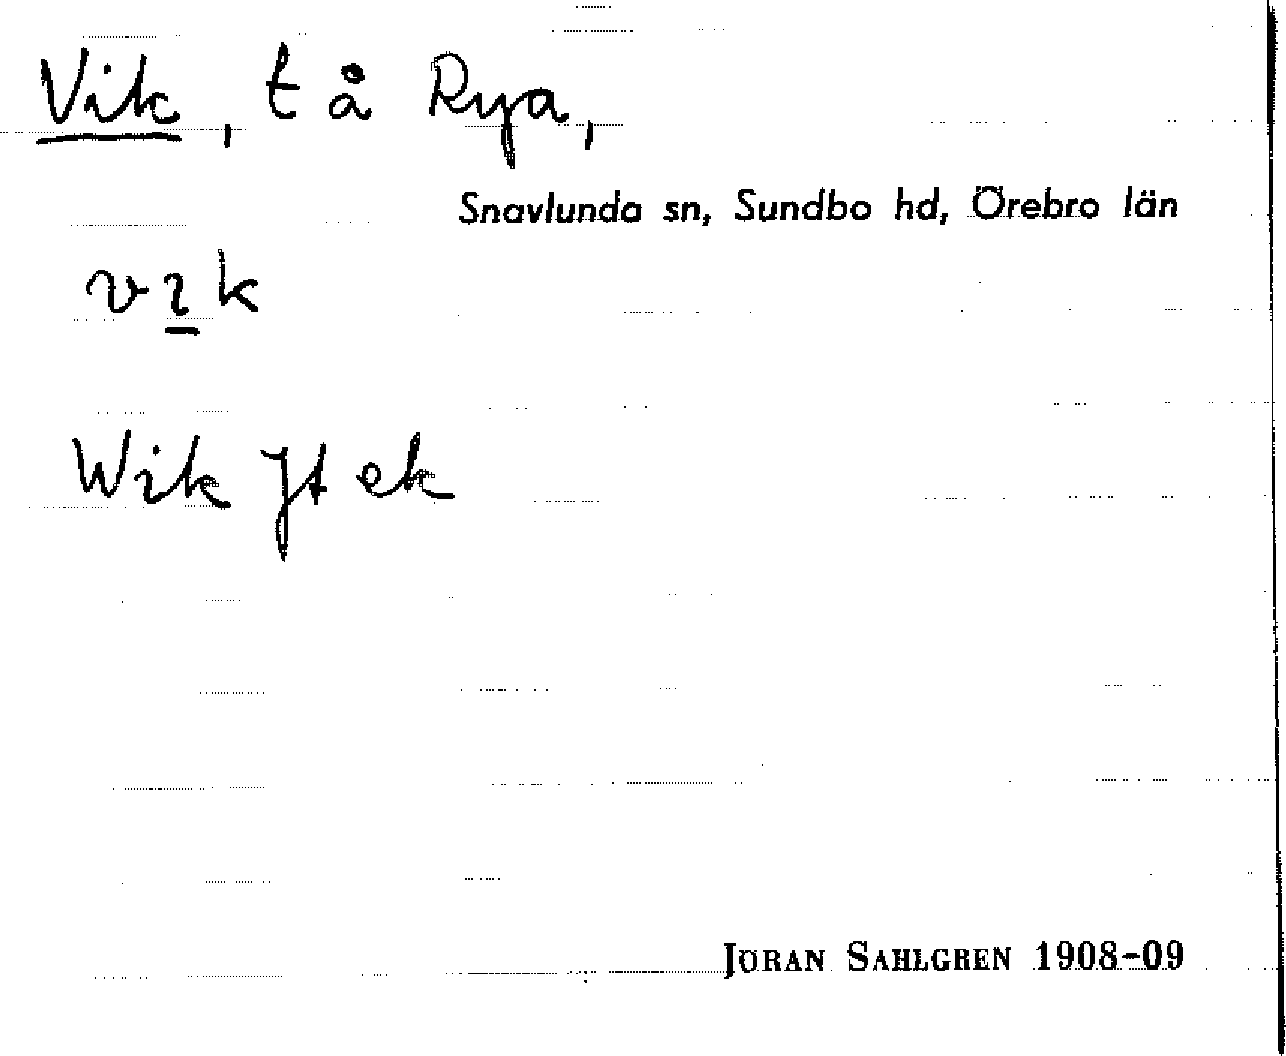 Vik, t å Rya,
Snavlunda sn, Sundbo hd, Örebro län
vık
Wik Jt ek
JÖRAN SAHLGREN 1908-09